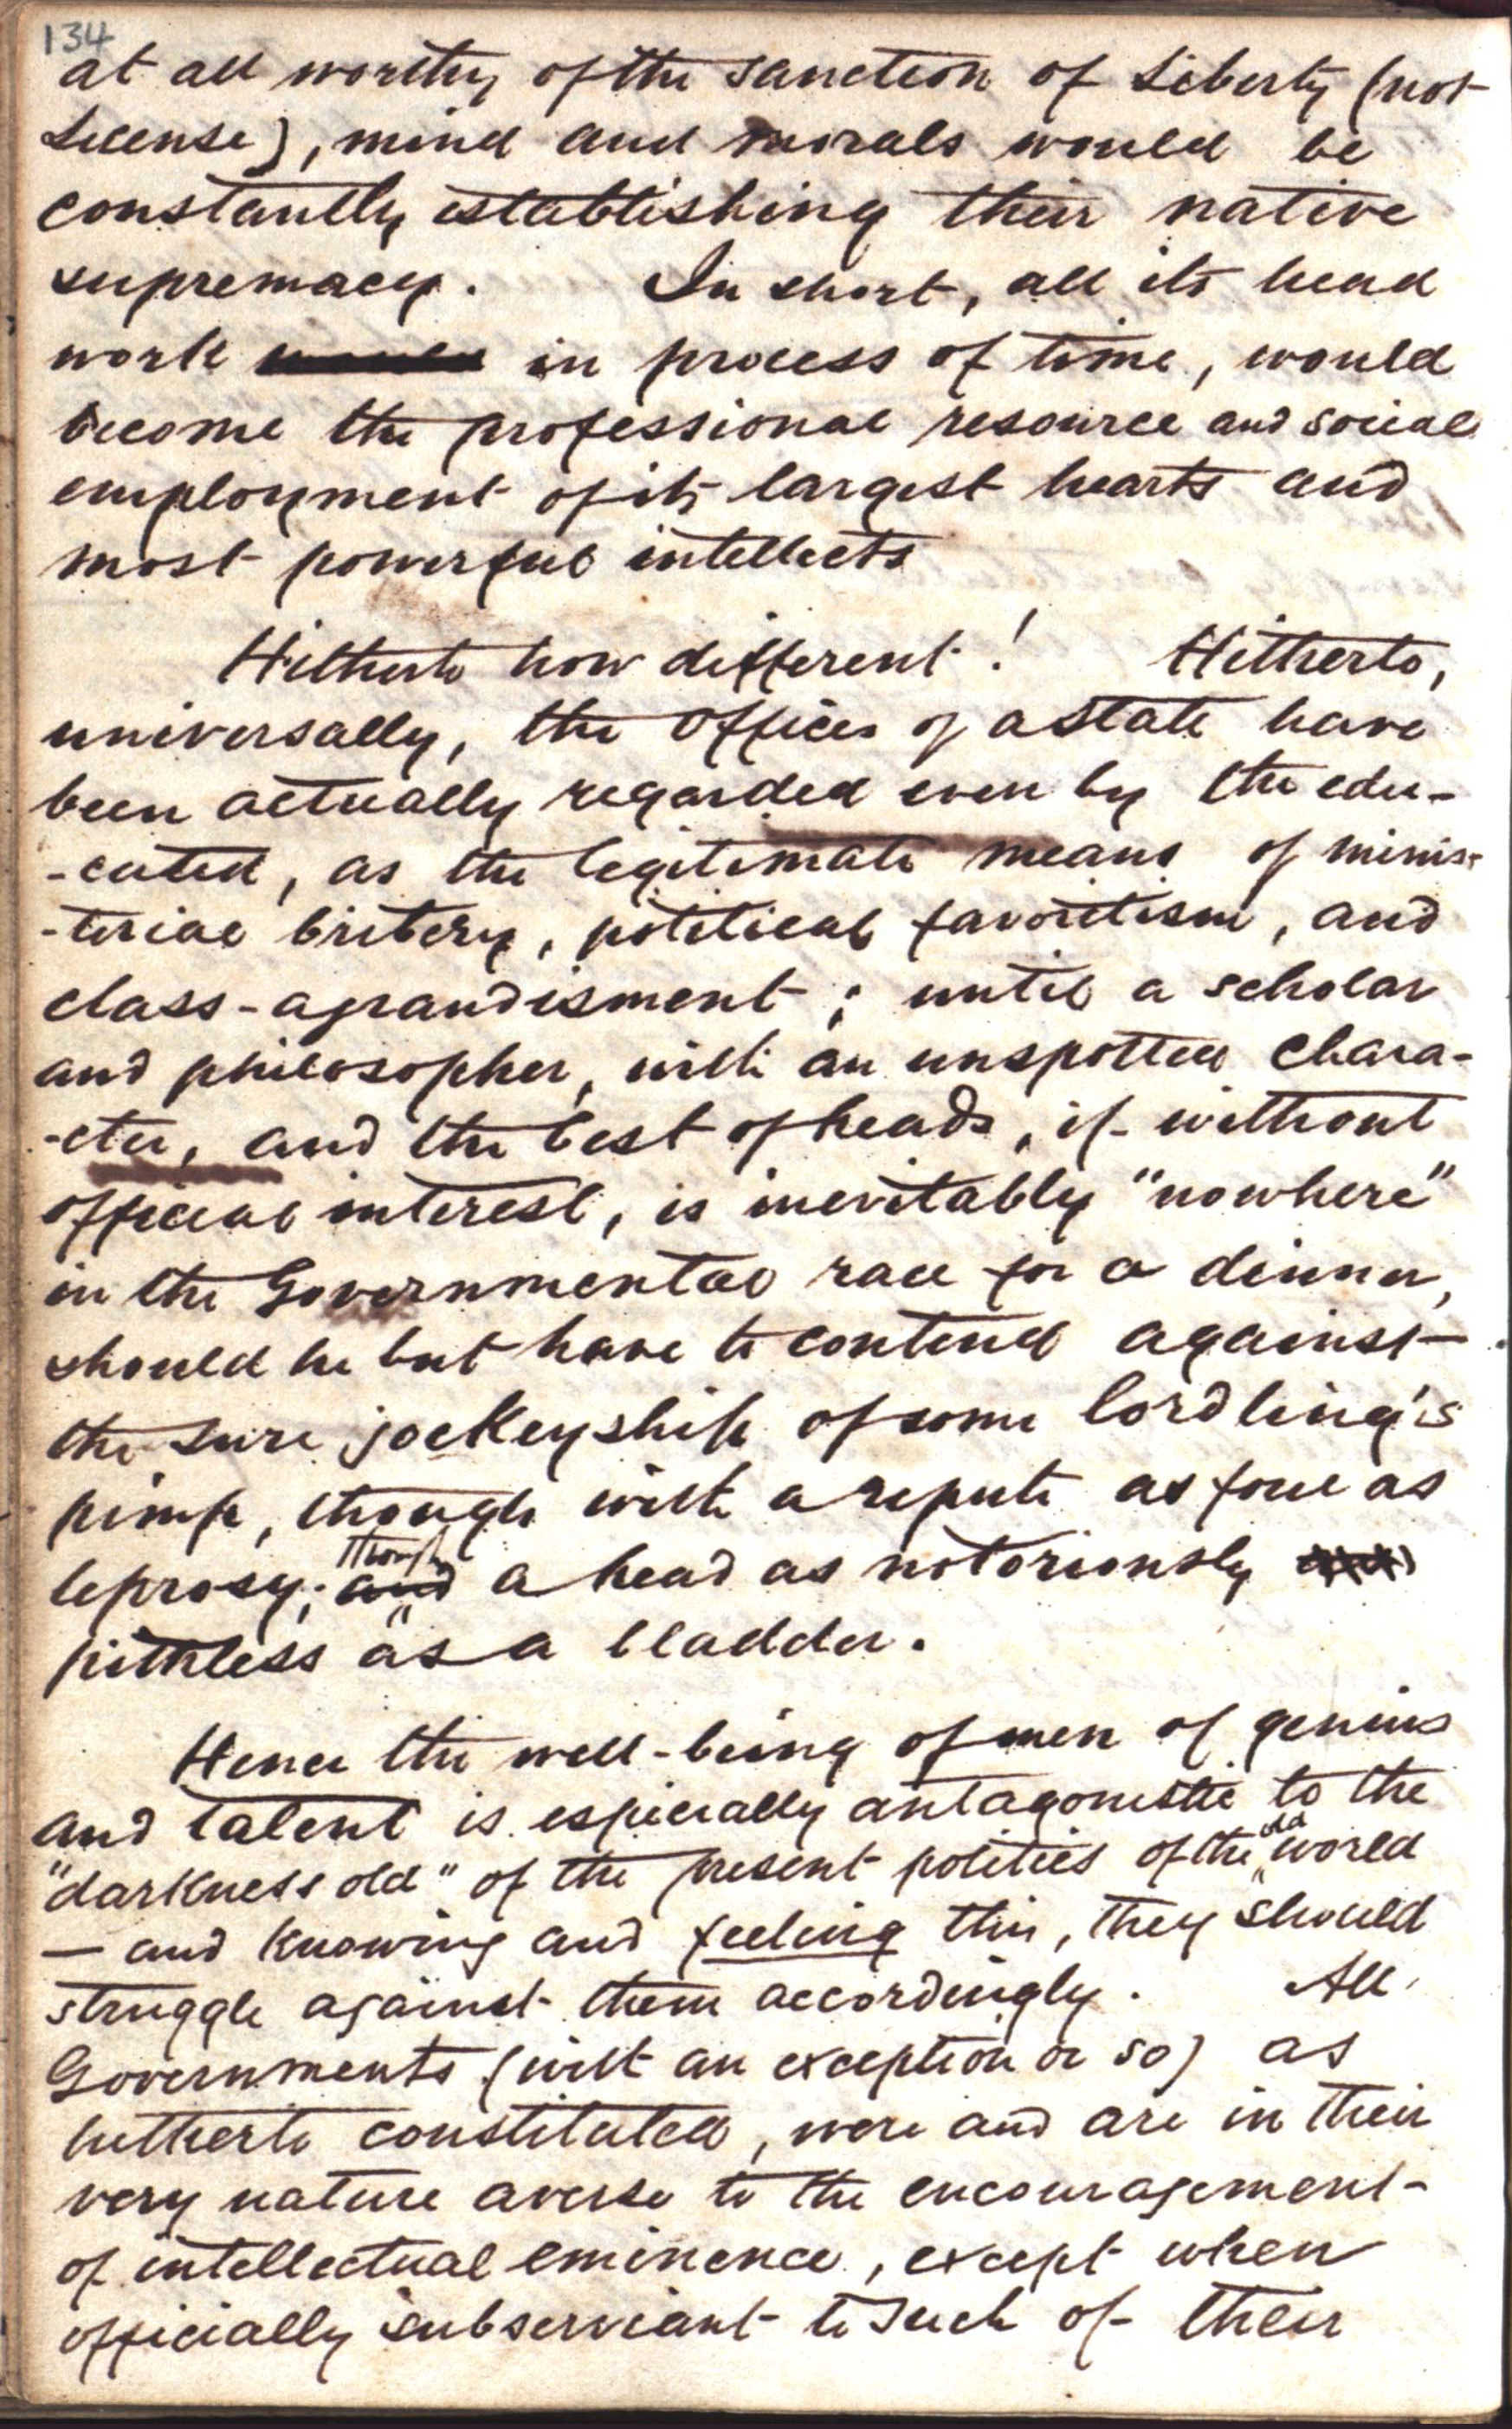 134
at all worthy of the sanction of Liberty (not
License), mind and morals would be
constantly establishing their native
supremacy. In short, all its head
work would in process of time, would
become the professional resource and social
employment of its largest hearts and
most powerful intellects
Hitherto how different! Hitherto,
universally, the Offices of a State have
been actually regarded even by the edu-
-cated, as the legitimate means of minis-
-terial bribery, political favoritism, and
class-agrandisment; until a scholar
and philosopher, with an unspotted chara-
-cter, and the best of heads, if without
official interest, is inevitably "nowhere"
in the Governmental race for a dinner,
should he but have to contend against
the sure jockeyship of some lordling's
pimp, though with a repute as foul as
leprosy; and though a head as notoriously
pithless as a bladder.
Hence the well-being of men of genius
and talent is especially antagonistic to the
"darkness old" of the present polities of the old world
— and knowing and feeling this, they should
struggle against them accordingly. All
Governments (with an exception or so) as
hitherto constituted, were and are in their
very nature averse to the encouragement
of intellectual eminence, except when
officially subserviant to such of their